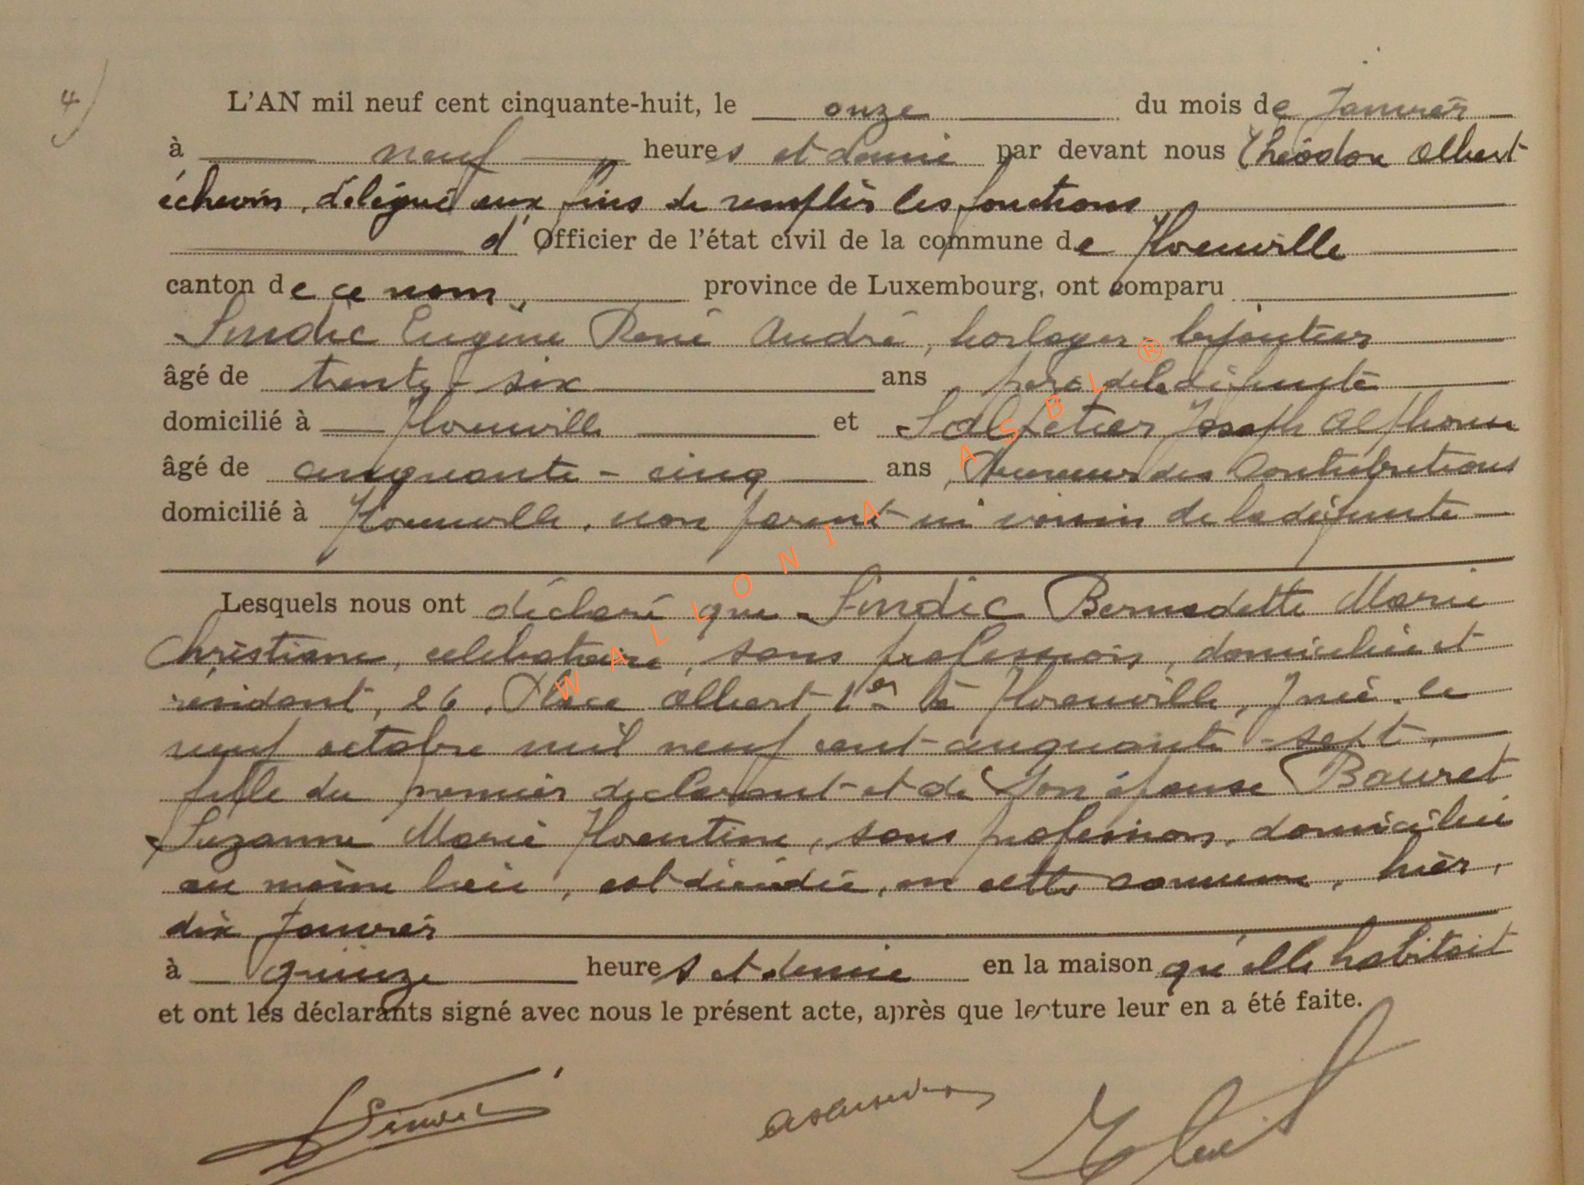 4)
L'AN mil neuf cent cinquante-huit, le onze du mois de Janvier
à neuf heures et demie par devant nous Théodore Albert
échevin, délégué aux fins de remplir les fonctions
d' Officier de l'état civil de la commune de Florenville
canton de ce nom, province de Luxembourg, ont comparu
Sindic Eugène René André, horloger-bijoutier
âgé de trente-six ans, père de la défunte
domicilié à Florenville et Salpetier Joseph Alphonse
âgé de cinquante-cinq ans, Receveur des Contributions
domicilié à Florenville, non parent ni voisin de la défunte
Lesquels nous ont déclaré que Sindic Bernadette Marie
Christiane, célibataire, sans profession, domiciliée et
résidant, 26, Place Albert 1er à Florenville, y née le
neuf octobre mil neuf cent cinquante-sept,
fille du premier déclarant et de son épouse Bauret
Suzanne Marie Florentine, sans profession, domiciliée
au même lieu, est décédée, en cette commune, hier,
dix Janvier
à quinze heures et demie en la maison qu'elle habitait
et ont les déclarants signé avec nous le présent acte, après que lecture leur en a été faite.
Sindic
WALLONIA ASBL ®